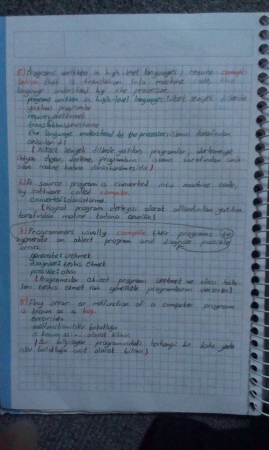 5) Programs written in high-level languages require compi-
lation that is translation into machine code the
language understood by the processor.
programs written in high-level languages: yüksek seviyeli dillerde
yazılmış programlar
require: gerektirmek
translation:
the language understood by the processor: işlemci tarafından
anlaşılan dil
[Yüksek seviyeli dillerde yazılmış programlar, derlemeye
ihtiyaç duyar,
6) A source program is converted into machine code,
by software called compiler.
convert: dönüştürme
[Kaynak program derleyici olarak adlandırılan yazılım
tarafından makine koduna çevrilir]
7) Programmers usually compile their programs to
generate an object program and diagnose possible
errors.
generate: üretmek
diagnose: teşhis etmek
possible: olası
[Programcılar object programı üretmek ve olası hata-
ları teşhis etmek için genellikle programlarını derlerler]
8) Any error or malfunction of a computer program
is known as a bug.
error: hata
malfunction: bozukluğu
is known as: olarak bilinir
[Bir bilgisayar programındaki herhangi bir hata yada
bozukluğu olarak bilinir]